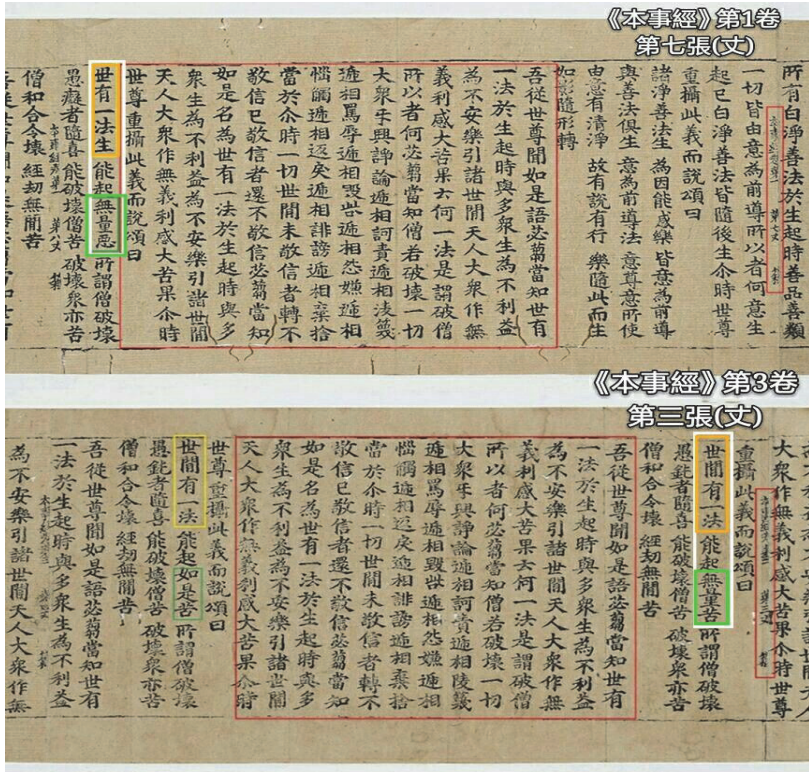 《本事經》第1卷
第七張(丈)
所有白淨善法於生起時善品善類
一切皆由意為前導所以者何意生
起已白淨善法皆隨後生尒時世尊
重攝此義而說頌曰
諸淨善法生 為因能感樂 皆意為前導
與善法俱生 意為前導法 意尊意所使
由意有清淨 故有說有行 樂隨此而生
如影隨形轉
吾從世尊聞如是語苾蒭當知世有
一法於生起時與多衆生為不利益
為不安樂引諸世間天人大衆作無
義利感大苦果云何一法是謂破僧
所以者何苾蒭當知僧若破壞一切
大衆互興諍論遞相訶責遞相淩篾
遞相罵辱遞相毀呰遞相怨嫌遞相
惱觸遞相返戾遞相誹謗遞相棄捨
當於尒時一切世間未敬信者轉不
敬信已敬信者還不敬信苾蒭當知
如是名為世有一法於生起時與多
衆生為不利益為不安樂引諸世間
天人大衆作無義利感大苦果尒時
世尊重攝此義而說頌曰
世有一法生 能起無量惡 所謂僧破壞
愚癡者隨喜 能破壞僧苦 破壞衆亦苦
僧和合令壞 經劫無間苦
《本事經》第3卷
第三張(丈)
大衆作無義利感大苦果尒時世尊
重攝此義而說頌曰
世間有一法 能起無量苦 所謂僧破壞
愚鈍者隨喜 能破壞僧苦 破壞衆亦苦
僧和合令壞 經劫無間苦
吾從世尊聞如是語苾蒭當知世有
一法於生起時與多衆生為不利益
為不安樂引諸世間天人大衆作無
義利感大苦果云何一法是謂破僧
所以者何苾蒭當知僧若破壞一切
大衆互興諍論遞相訶責遞相陵篾
遞相罵辱遞相毀呰遞相怨嫌遞相
惱觸遞相返戾遞相誹謗遞相棄捨
當於尒時一切世間未敬信者轉不
敬信已敬信者還不敬信苾蒭當知
如是名為世有一法於生起時與多
衆生為不利益為不安樂引諸世間
天人大衆作無義利感大苦果尒時
世尊重攝此義而說頌曰
世間有一法 能起如是苦 所謂僧破壞
愚鈍者隨喜 能破壞僧苦 破壞衆亦苦
僧和合令壞 經劫無間苦
吾從世尊聞如是語苾蒭當知世有
一法於生起時與多衆生為不利益
為不安樂引諸世間天人大衆作無